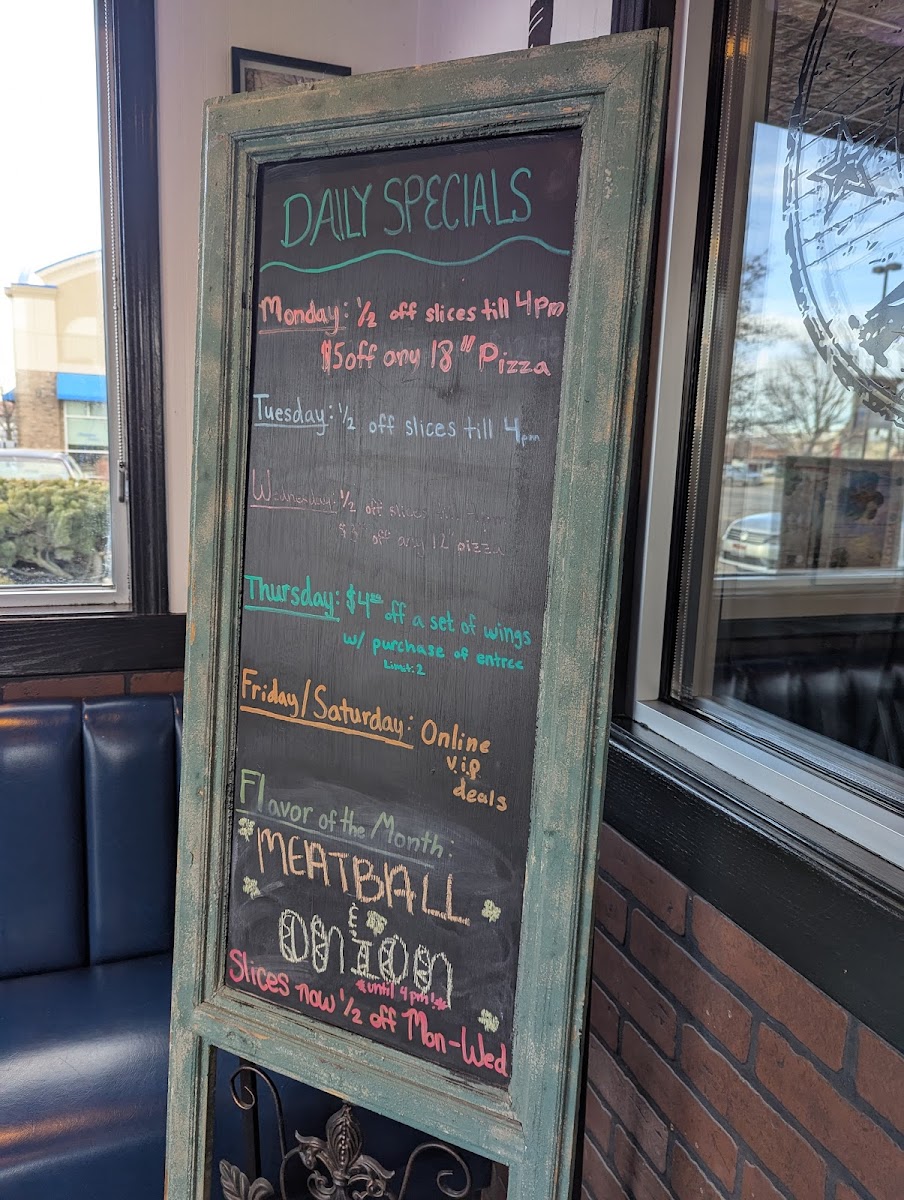 DAILY SPECIALS
Monday: 1/2 off slices till 4pm
$5 off any 18" Pizza
Tuesday: 1/2 off slices till 4pm
Wednesday: 1/2 off slices
off any 12" pizza
Thursday: $4.00 off a set of wings
w/ purchase of entree
Limit: 2
Friday/Saturday: Online
v.i.p
deals
Flavor of the Month:
MEATBALL
&
ONION
*until 4pm!*
Slices now 1/2 off Mon-Wed